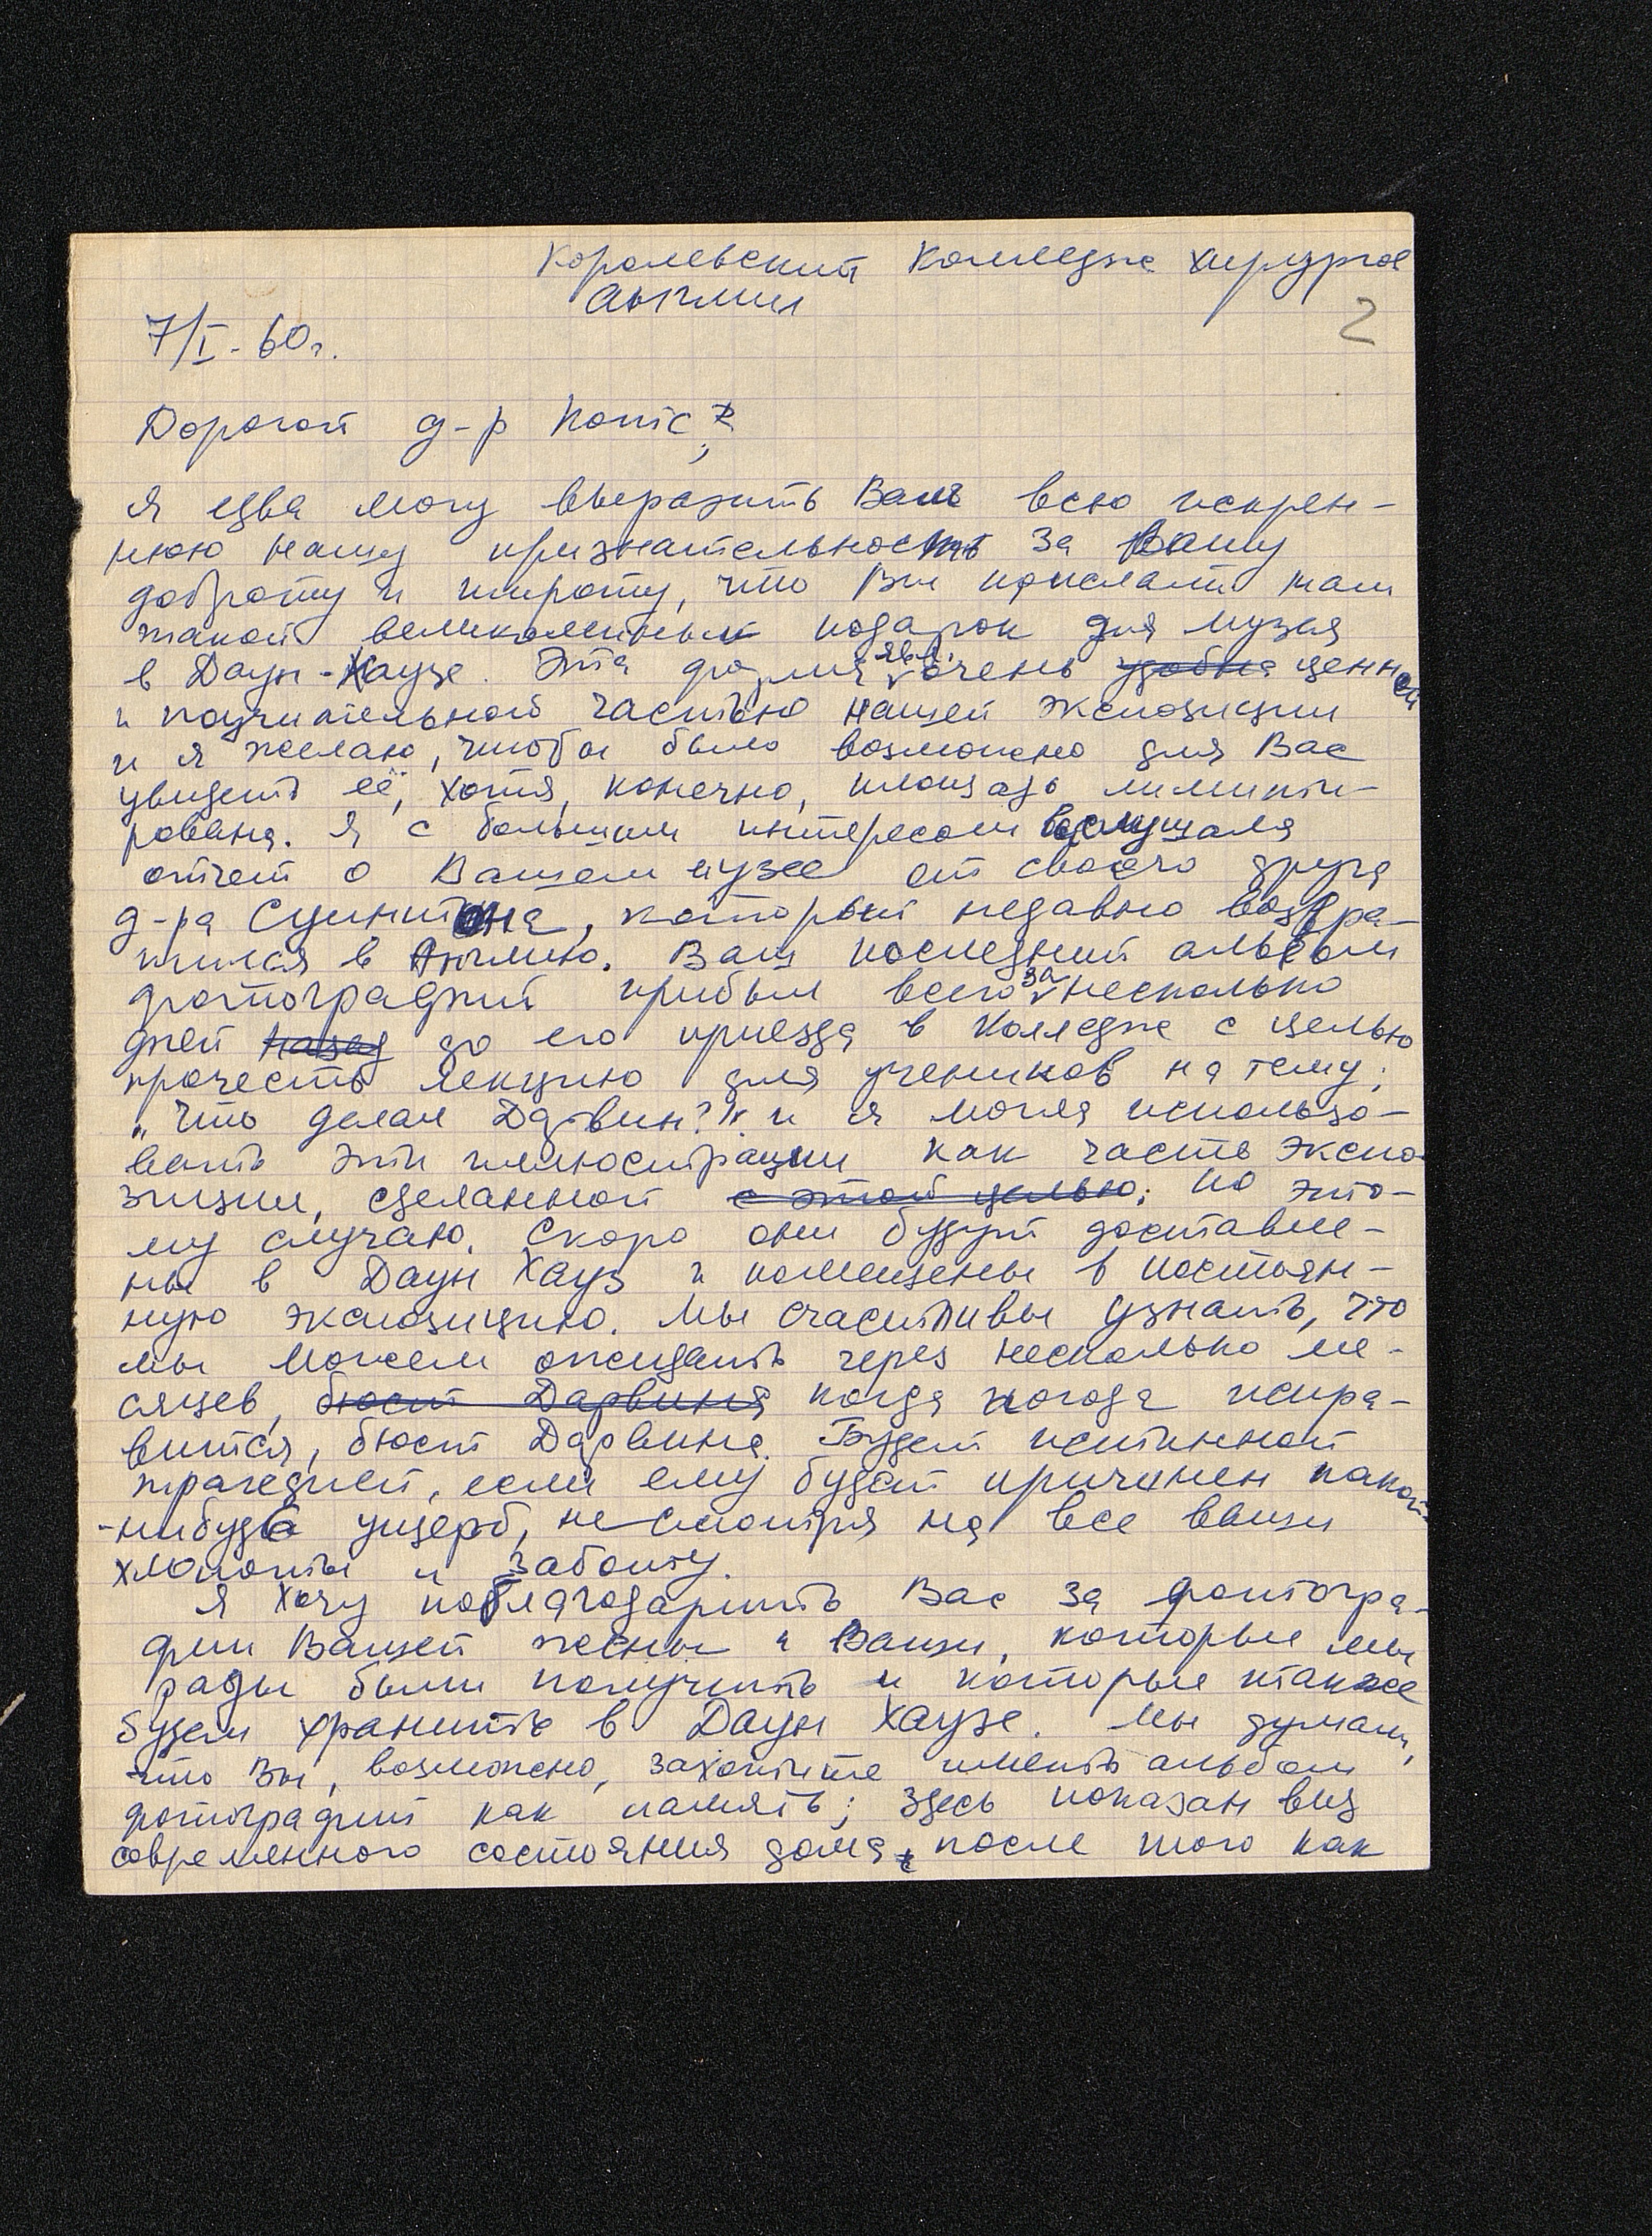 Королевский Колледж хирургов
Англии
2
7/I-60г.
Дорогой д-р Котс,
Я едва могу выразить Вам всю искрен-
нюю нашу признательность за Вашу
доброту и широту, что Вы прислали нам
такой великолепный подарок для музея
в Даун-Хаузе. Эта форма явл. очень удобна ценной
и поучительной частью нашей экспозиции
и я желаю, чтобы было возможно для Вас
увидеть её, хотя, конечно, площадь лимити-
рована. Я с большим интересом выслушала
отчет о Вашем музее от своего друга
д-ра Суинтона, который недавно возвра-
тился в Англию. Ваш последний альбом
фотографий прибыл всего за несколько
дней назад до его приезда в Колледж с целью
прочесть лекцию для учеников на тему:
"Что делал Дарвин?" и я могла использо-
вать эти иллюстрации как часть экспо-
зиции, сделанной с этой целью; по это-
му случаю. Скоро они будут доставле-
ны в Даун Хауз и помещены в постоян-
ную экспозицию. Мы счастливы узнать, что
мы можем ожидать через несколько ме-
сяцев, бюст Дарвина когда погода испра-
вится, бюст Дарвина. Будет истинной
трагедией, если ему будет причинен какой-
-нибудь ущерб, не смотря на все ваши
хлопоты и заботу.
Я хочу поблагодарить Вас за фотогра-
фии Вашей жены и Ваши, которые мы
рады были получить и которые также
будем хранить в Даун Хаузе. Мы думали,
что Вы, возможно, захотите иметь альбом
фотографий как память; здесь показан вид
современного состояния дома, после того как